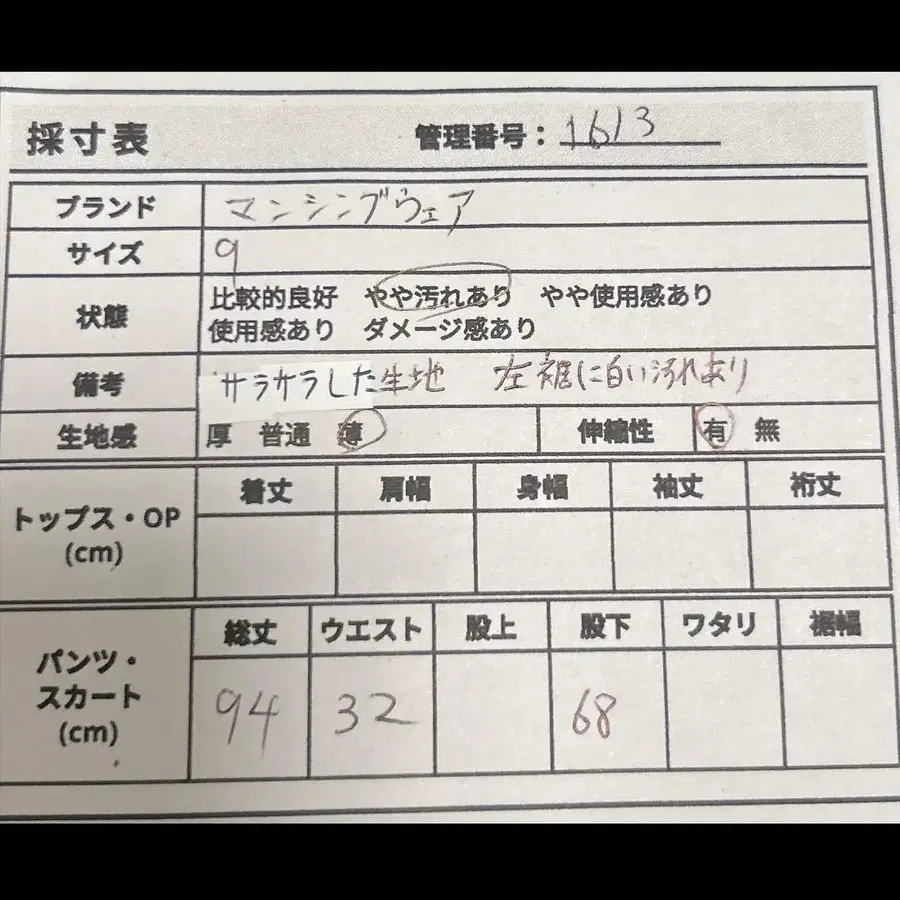 採寸表 管理番号：1613
ブランド マンシングウェア
サイズ 9
状態 比較的良好 やや汚れあり やや使用感あり
使用感あり ダメージ感あり
備考 サラサラした生地 左裾に白い汚れあり
生地感 厚 普通 薄 伸縮性 有 無
トップス・OP
(cm)
着丈 肩幅 身幅 袖丈 裄丈
パンツ・
スカート
(cm)
総丈 ウエスト 股上 股下 ワタリ 裾幅
94 32 68